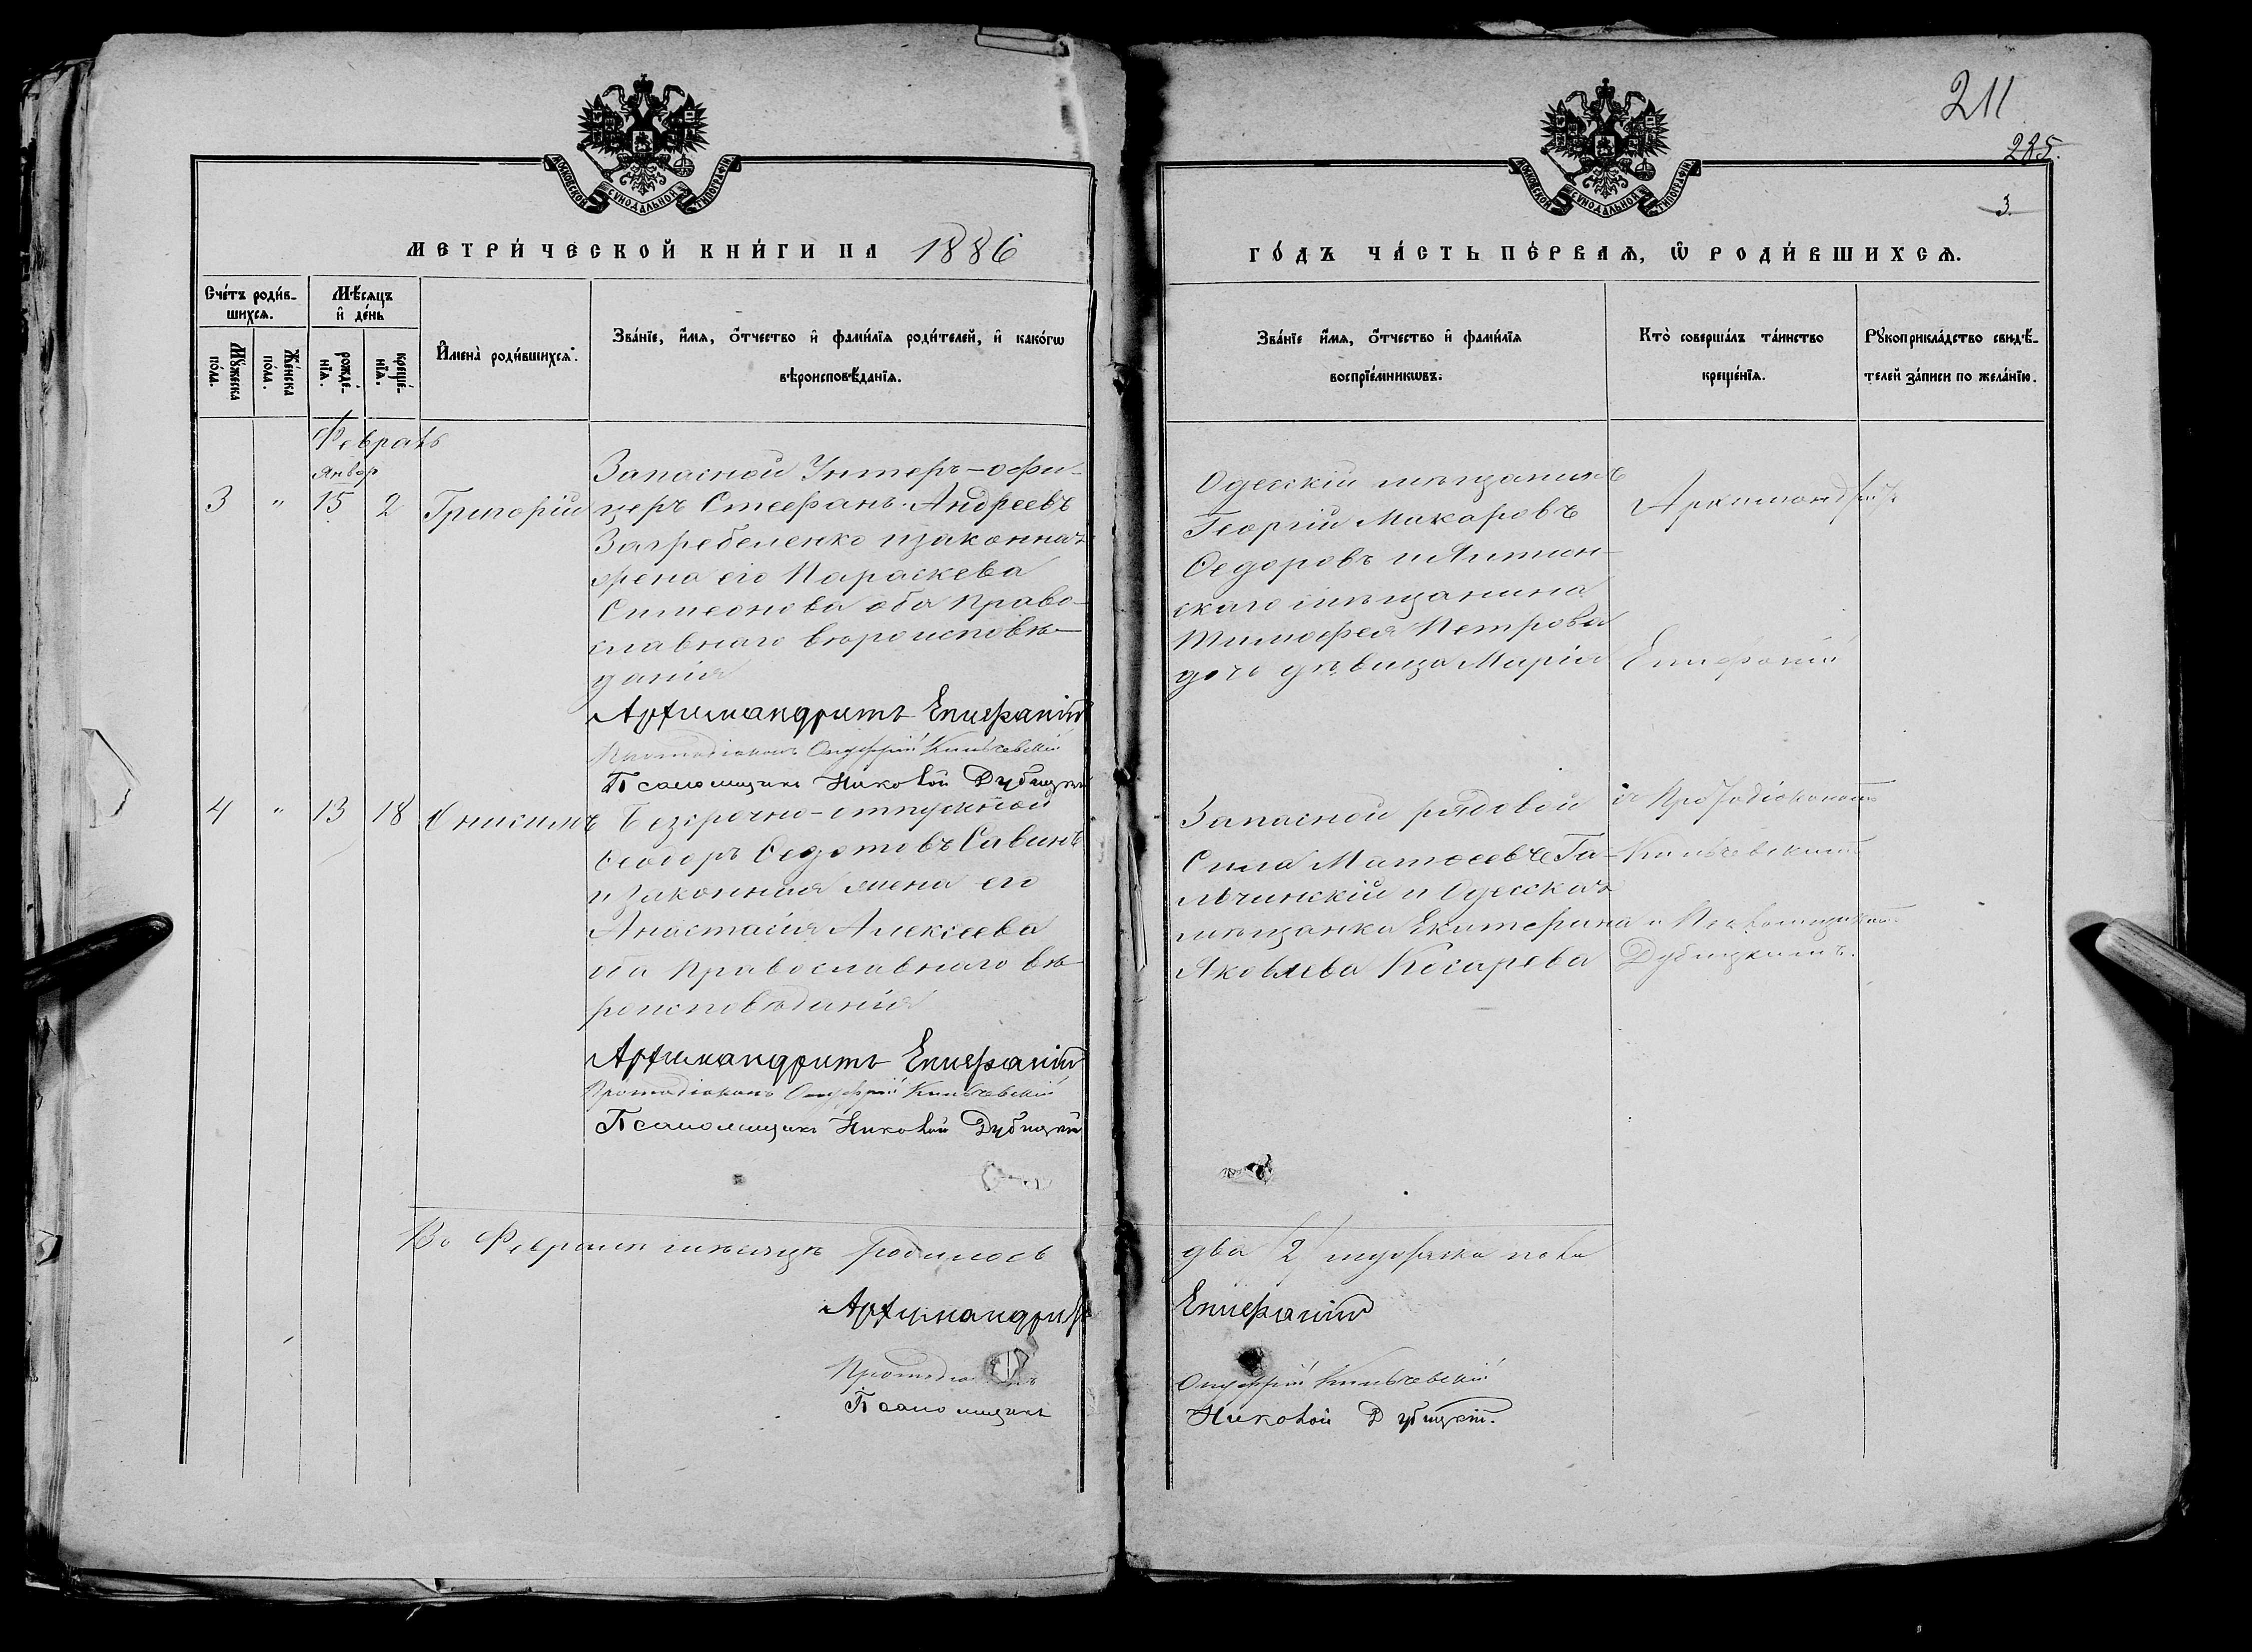 211
285.
3.
МОСКОВСКОЙ СѴНОДАЛЬНОЙ ТИПОГРАФІИ
МОСКОВСКОЙ СѴНОДАЛЬНОЙ ТИПОГРАФІИ
МЕТРИ́ЧЕСКОЙ КНИ́ГИ НА 1886
ГО́ДЪ ЧА́СТЬ ПЕ́РВАѦ, Ѡ РОДИ́ВШИХСѦ.
Сче́тъ роди́в-
шихсѧ.
Мꙋ́жеска
по́ла.
Же́нска
по́ла.
Мѣ́сѧцъ
и҆ де́нь
рожде́-
нїѧ.
креще́-
нїѧ.
И҆мена̀ роди́вшихсѧ.
Зва́нїе, и҆́мѧ, ѻ҆́тчество и҆ фами́лїѧ роди́телей, и҆ како́гѡ
вѣроисповѣ́данїѧ.
Зва́нїе и҆́мѧ, ѻ҆́тчество и҆ фами́лїѧ
воспрїе́мникѡвъ.
Кто̀ соверша́лъ та́инство
креще́нїѧ.
Рꙋкоприкла́дство свидѣ́-
телей за́писи по жела́нїю.
Февраль
Январ
3 " 15 2 Григорій
Запасной Унтеръ-офи-
церъ Стефанъ Андреевъ
Загребеленко и законная
жена его Параскева
Симеонова оба Право-
славнаго вѣроисповѣ-
данія
Архимандритъ Епифаній
Протодіаконъ Онуфрій Кильчевскій
Псаломщикъ Николай Дубицкій
Одесскій мѣщанинъ
Георгій Макаровъ
Федоровъ и
скаго мѣщанина
Тимофея Петрова
дочь дѣвица Марія
Архимандритъ
Епифаній
4 " 13 18 Онисимъ
Безсрочно-отпускной
Феодоръ Федотовъ Савинъ
и законная жена его
Анастасія Алексеева
оба Православнаго вѣ-
роисповѣданія
Архимандритъ Епифаній
Протодіаконъ Онуфрій Кильчевскій
Псаломщикъ Николай Дубицкій
Запасной рядовой
Сила Матвеевъ Га-
льчинскій и Одесская
мѣщанка Екатерина
Яковлева Косарева
съ Протодіакономъ
Кильчевскимъ
и Псаломщикомъ
Дубицкимъ.
Во Февралѣ мѣсяцѣ родилось два 2 мужеска пола
Архимандритъ Епифаній
Протодіаконъ Онуфрій Кильчевскій
Псаломщикъ Николай Дубицкій.